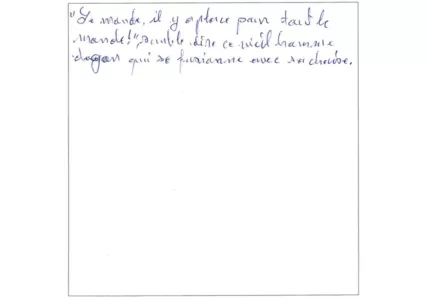 "Le monde, il y a place pour tout le
monde!", semble dire ce vieil homme
dogon qui se promène avec sa chaise.